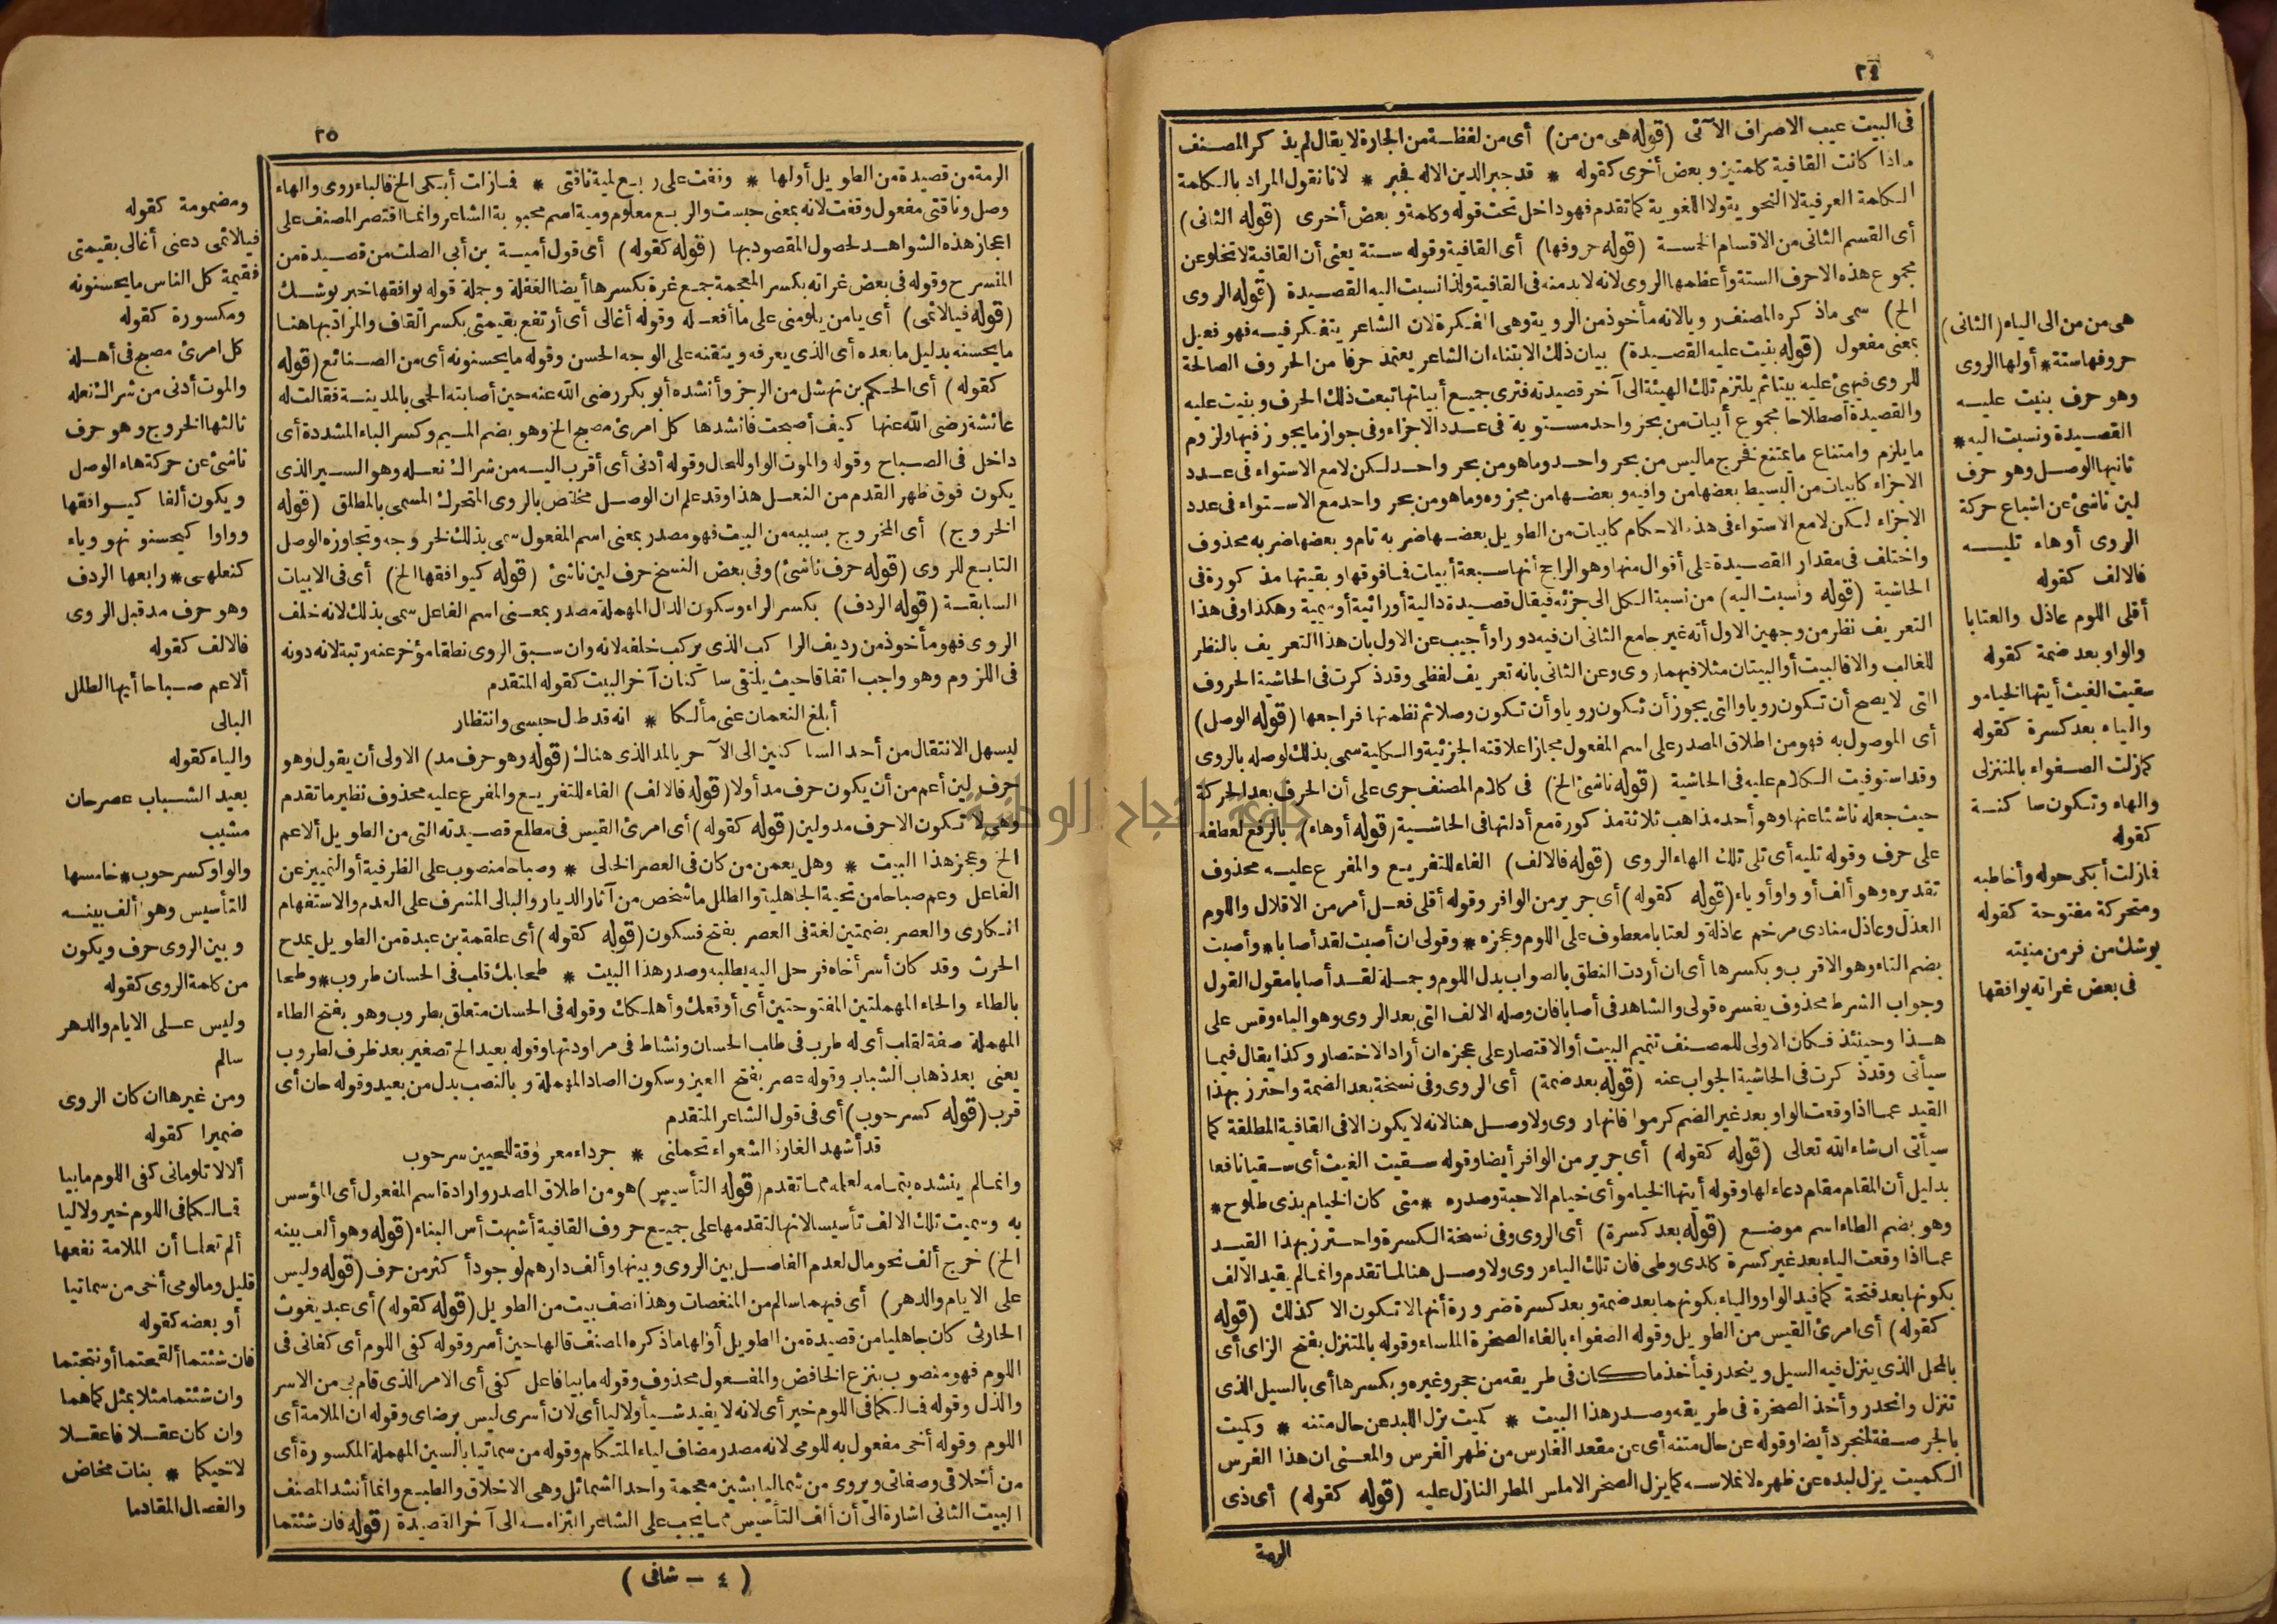 ٢٤
فى البيت عيب الاصراف الآتى (قوله هى من من) أى من لفظة من الجارة لا يقال لم يذكر المصنف
ماذا كانت القافية كلمتين وبعض أخرى كقوله * قد جبر الدين الاله فجبر * لانا نقول المراد بالكلمة
الكلمة العرفية لا النحوية ولا اللغوية كما تقدم فهو داخل تحت قوله وكلمة وبعض أخرى (قوله الثانى)
أى القسم الثانى من الاقسام الخمسة (قوله حروفها) أى القافية وقوله ستة يعنى أن القافية لا تخلو عن
مجموع هذه الاحرف الستة وأعظمها الروى لانه لا بد منه فى القافية ولذا نسبت اليه القصيدة (قوله الروى
الخ) سمى ماذكره المصنف رويا لانه مأخوذ من الروية وهى الفكرة لان الشاعر يتفكر فيه فهو فعيل
بمعنى مفعول (قوله بنيت عليه القصيدة) بيان ذلك الابتناء ان الشاعر يعتمد حرفا من الحروف الصالحة
للروى فيبنى عليه بيتا ثم يلتزم تلك الهيئة الى آخر قصيدته فترى جميع أبياتها تبعت ذلك الحرف وبنيت عليه
والقصيدة اصطلاحا مجموع أبيات من بحر واحد مستوية فى عدد الاجزاء وفى جواز ما يجوز فيها ولزوم
ما يلزم وامتناع ما يمتنع فخرج ما ليس من بحر واحد وما هو من بحر واحد لكن لا مع الاستواء فى عدد
الاجزاء كابيات من البسيط بعضها من وافيه وبعضها من مجزوه وما هو من بحر واحد مع الاستواء فى عدد
الاجزاء لكن لا مع الاستواء فى هذه الاحكام كابيات من الطويل بعضها ضربه تام وبعضها ضربه محذوف
واختلف فى مقدار القصيدة على أقوال منها وهو الراجح أنها سبعة أبيات فما فوقها وبقيتها مذكورة فى
الحاشية (قوله ونسبت اليه) من نسبة الكل الى جزئه فيقال قصيدة دالية أو رائية أو ميمية وهكذا وفى هذا
التعريف نظر من وجهين الاول أنه غير جامع الثانى ان فيه دورا وأجيب عن الاول بان هذا التعريف بالنظر
للغالب والا فالبيت أو البيتان مثلا فيهما روى وعن الثانى بانه تعريف لفظى وقد ذكرت فى الحاشية الحروف
التى لا يصح أن تكون رويا والتى يجوز أن تكون رويا وأن تكون وصلا ثم نظمتها فراجعها (قوله الوصل)
أى الموصول به فهو من اطلاق المصدر على اسم المفعول مجازا علاقته الجزئية والكلية سمى بذلك لوصله بالروى
وقد استوفيت الكلام عليه فى الحاشية (قوله ناشئ الخ) فى كلام المصنف جرى على أن الحرف بعد الحركة
حيث جعله ناشئا عنها وهو أحد مذاهب ثلاثة مذكورة مع أدلتها فى الحاشية (قوله أوهاء) بالرفع لعطفه
على حرف وقوله تليه أى تلى تلك الهاء الروى (قوله فالالف) الفاء للتفريع والمفرع عليه محذوف
تقديره وهو ألف أو واو أو ياء (قوله كقوله) أى جرير من الوافر وقوله أقلى فعل أمر من الاقلال واللوم
العذل وعاذل منادى مرخم عاذلة ولعتابا معطوف على اللوم وعجزه * وقولى ان أصبت لقد أصابا * وأصبت
بضم التاء وهو الاقرب وبكسرها أى ان أردت النطق بالصواب بدل اللوم وجملة لقد أصابا مقول القول
وجواب الشرط محذوف يفسره قولى والشاهد فى أصابا فان وصله الالف التى بعد الروى وهو الباء وقس على
هذا وحينئذ فكان الاولى للمصنف تتميم البيت أو الاقتصار على عجزه ان أراد الاختصار وكذا يقال فيما
سيأتى وقد ذكرت فى الحاشية الجواب عنه (قوله بعد ضمة) أى الروى وفى نسخة بعد الضمة واحترز بهذا
القيد عما اذا وقعت الواو بعد غير الضم كرموا فانها روى ولا وصل هنا لانه لا يكون الا فى القافية المطلقة كما
سيأتى ان شاء الله تعالى (قوله كقوله) أى جرير من الوافر أيضا وقوله سقيت الغيث أى سقيا نافعا
بدليل أن المقام مقام دعاء لها وقوله أيتها الخيامو أى خيام الاحبة وصدره * متى كان الخيام بذى طلوح *
وهو بضم الطاء اسم موضع (قوله بعد كسرة) أى الروى وفى نسخة الكسرة واحترز بهذا القيد
عما اذا وقعت الياء بعد غير كسرة كلدى وطى فان تلك الياء روى ولا وصل هنا لما تقدم وانما لم يقيد الالف
بكونها بعد فتحة كما قيد الواو والياء بكونهما بعد ضمة وبعد كسرة ضرورة أنها لا تكون الا كذلك (قوله
كقوله) أى امرئ القيس من الطويل وقوله الصفواء بالفاء الصخرة الملساء وقوله بالمتنزل بفتح الزاى أى
بالمحل الذى ينزل فيه السيل وينحدر فيأخذ ما كان فى طريقه من حجر وغيره وبكسرها أى بالسيل الذى
تنزل وانحدر وأخذ الصخرة فى طريقه وصدر هذا البيت * كميت يزل اللبد عن حال متنه * وكميت
بالجر صفة لمنجرد أيضا وقوله عن حال متنه أى عن مقعد الفارس من ظهر الفرس والمعنى ان هذا الفرس
الكميت يزل لبده عن ظهره لانملاسه كما يزل الصخر الاملس المطر النازل عليه (قوله كقوله) أى ذى
الرمة
هى من من الى الياء (الثانى)
حروفها ستة * أولها الروى
وهو حرف بنيت عليه
القصيدة ونسبت اليه *
ثانيها الوصل وهو حرف
لين ناشئ عن اشباع حركة
الروى أوهاء تليه
فالالف كقوله
أقلى اللوم عاذل والعتابا
والواو بعد ضمة كقوله
سقيت الغيث أيتها الخيامو
والياء بعد كسرة كقوله
كما زلت الصفواء بالمتنزلى
والهاء وتكون ساكنة
كقوله
فمازلت أبكى حوله وأخاطبه
ومتحركة مفتوحة كقوله
يوشك من فر من منيته
فى بعض غراته يوافقها
٢٥
الرمة من قصيدة من الطويل أولها * وقفت على ربع لمية ناقتى * فمازلت أبكى الخ فالباء روى والهاء
وصل وناقتى مفعول وقفت لانه بمعنى حبست والربع معلوم ومية اسم محبوبة الشاعر وانما اقتصر المصنف على
اعجاز هذه الشواهد لحصول المقصود بها (قوله كقوله) أى قول أمية بن أبى الصلت من قصيدة من
المنسرح وقوله فى بعض غراته بكسر المعجمة جمع غرة بكسرها أيضا الغفلة وجملة قوله يوافقها خبر يوشك
(قوله فيالائمى) أى يا من يلومنى على ما أفعله وقوله أغالى أى أرتفع بقيمتى بكسر القاف والمراد بها هنا
ما يحسنه بدليل ما بعده أى الذى يعرفه ويتقنه على الوجه الحسن وقوله ما يحسنونه أى من الصنائع (قوله
كقوله) أى الحكم بن نهشل من الرجز وأنشده أبو بكر رضى الله عنه حين أصابته الحمى بالمدينة فقالت له
عائشة رضى الله عنها كيف أصبحت فانشدها كل امرئ مصبح الخ وهو بضم الميم وكسر الباء المشددة أى
داخل فى الصباح وقوله والموت الواو للحال وقوله أدنى أى أقرب اليه من شراك نعله وهو السير الذى
يكون فوق ظهر القدم من النعل هذا وقد علم ان الوصل مختص بالروى المتحرك المسمى بالمطلق (قوله
الخروج) أى المخروج بسببه من البيت فهو مصدر بمعنى اسم المفعول سمى بذلك لخروجه وتجاوزه الوصل
التابع للروى (قوله حرف ناشئ) وفى بعض النسخ حرف لين ناشئ (قوله كيوافقها الخ) أى فى الابيات
السابقة (قوله الردف) بكسر الراء وسكون الدال المهملة مصدر بمعنى اسم الفاعل سمى بذلك لانه خلف
الروى فهو مأخوذ من رديف الراكب الذى يركب خلفه لانه وان سبق الروى نطقا مؤخر عنه رتبة لانه دونه
فى اللزوم وهو واجب اتفاقا حيث يلتقى ساكنان آخر البيت كقوله المتقدم
أبلغ النعمان عنى مألكا * انه قد طال حبسى وانتظار
ليسهل الانتقال من أحد الساكنين الى الآخر بالمد الذى هناك (قوله وهو حرف مد) الاولى أن يقول وهو
حرف لين أعم من أن يكون حرف مد أولا (قوله فالالف) الفاء للتفريع والمفرع عليه محذوف نظير ما تقدم
وهى لا تكون الا حرف مد ولين (قوله كقوله) أى امرئ القيس فى مطلع قصيدته التى من الطويل ألا عم
الخ وعجز هذا البيت * وهل يعمن من كان فى العصر الخالى * وصباحا منصوب على الظرفية أو التمييز عن
الفاعل وعم صباحا من تحية الجاهلية والطلل ما شخص من آثار الديار والبالى المشرف على العدم والاستفهام
انكارى والعصر بضمتين لغة فى العصر بفتح فسكون (قوله كقوله) أى علقمة بن عبدة من الطويل يمدح
الحرث وقد كان أسر أخاه فرحل اليه يطلبه وصدر هذا البيت * طحا بك قلب فى الحسان طروب * وطحا
بالطاء والحاء المهملتين المفتوحتين أى أوقعك وأهلكك وقوله فى الحسان متعلق بطروب وهو بفتح الطاء
المهملة صفة لقلب أى له طرب فى طلب الحسان ونشاط فى مراودتها وقوله بعيد الخ تصغير بعد ظرف لطروب
يعنى بعد ذهاب الشباب وقوله عصر بفتح العين وسكون الصاد المهملة وبالنصب بدل من بعيد وقوله حان أى
قرب (قوله كسرحوب) أى فى قول الشاعر المتقدم
قد أشهد الغارة الشعواء تحملنى * جرداء معروقة اللحيين سرحوب
وانما لم ينشده بتمامه لعلمه مما تقدم (قوله التأسيس) هو من اطلاق المصدر وارادة اسم المفعول أى المؤسس
به وسميت تلك الالف تأسيسا لانها لتقدمها على جميع حروف القافية أشبهت أس البناء (قوله وهو ألف بينه
الخ) خرج ألف نحو مال لعدم الفاصل بين الروى وبينها وألف دارهم لوجود أكثر من حرف (قوله وليس
على الايام والدهر) أى فيهما سالم من المنغصات وهذا نصف بيت من الطويل (قوله كقوله) أى عبد يغوث
الحارثى كان جاهليا من قصيدة من الطويل أولها ماذكره المصنف قالها حين أسر وقوله كفى اللوم أى كفانى فى
اللوم فهو منصوب بنزع الخافض والمفعول محذوف وقوله مابيا فاعل كفى أى الامر الذى قام بى من الاسر
والذل وقوله فمالكما فى اللوم خير أى لانه لا يفيد شيأ ولا ليا أى لان أسرى ليس برضاى وقوله ان الملامة أى
اللوم وقوله أخى مفعول به للومى لانه مصدر مضاف لياء المتكلم وقوله من سماتيا بالسين المهملة المكسورة أى
من أخلاقى وصفاتى ويروى من شماليا بشين معجمة واحد الشمائل وهى الاخلاق والطبع وانما أنشد المصنف
البيت الثانى اشارة الى أن ألف التأسيس مما يجب على الشاعر التزامه الى آخر القصيدة (قوله فان شئتما
( ٤ - شافى )
ومضمومة كقوله
فيالائمى دعنى أغالى بقيمتى
فقيمة كل الناس ما يحسنونه
ومكسورة كقوله
كل امرئ مصبح فى أهله
والموت أدنى من شراك نعله
ثالثها الخروج وهو حرف
ناشئ عن حركة هاء الوصل
ويكون ألفا كيوافقها
وواوا كيحسنونهو وياء
كنعلهى * رابعها الردف
وهو حرف مد قبل الروى
فالالف كقوله
ألا عم صباحا أيها الطلل
البالى
والياء كقوله
بعيد الشباب عصر حان
مشيب
والواو كسرحوب * خامسها
التأسيس وهو ألف بينه
وبين الروى حرف ويكون
من كلمة الروى كقوله
وليس على الايام والدهر
سالم
ومن غيرها ان كان الروى
ضميرا كقوله
ألا لا تلومانى كفى اللوم مابيا
فمالكما فى اللوم خير ولا ليا
ألم تعلما أن الملامة نفعها
قليل وما لومى أخى من سماتيا
أو بعضه كقوله
فان شئتما ألقحتما أو نتجتما
وان شئتما مثلا بمثل كما هما
وان كان عقلا فاعقلا
لاخيكما * بنات مخاض
والفصال المقادما